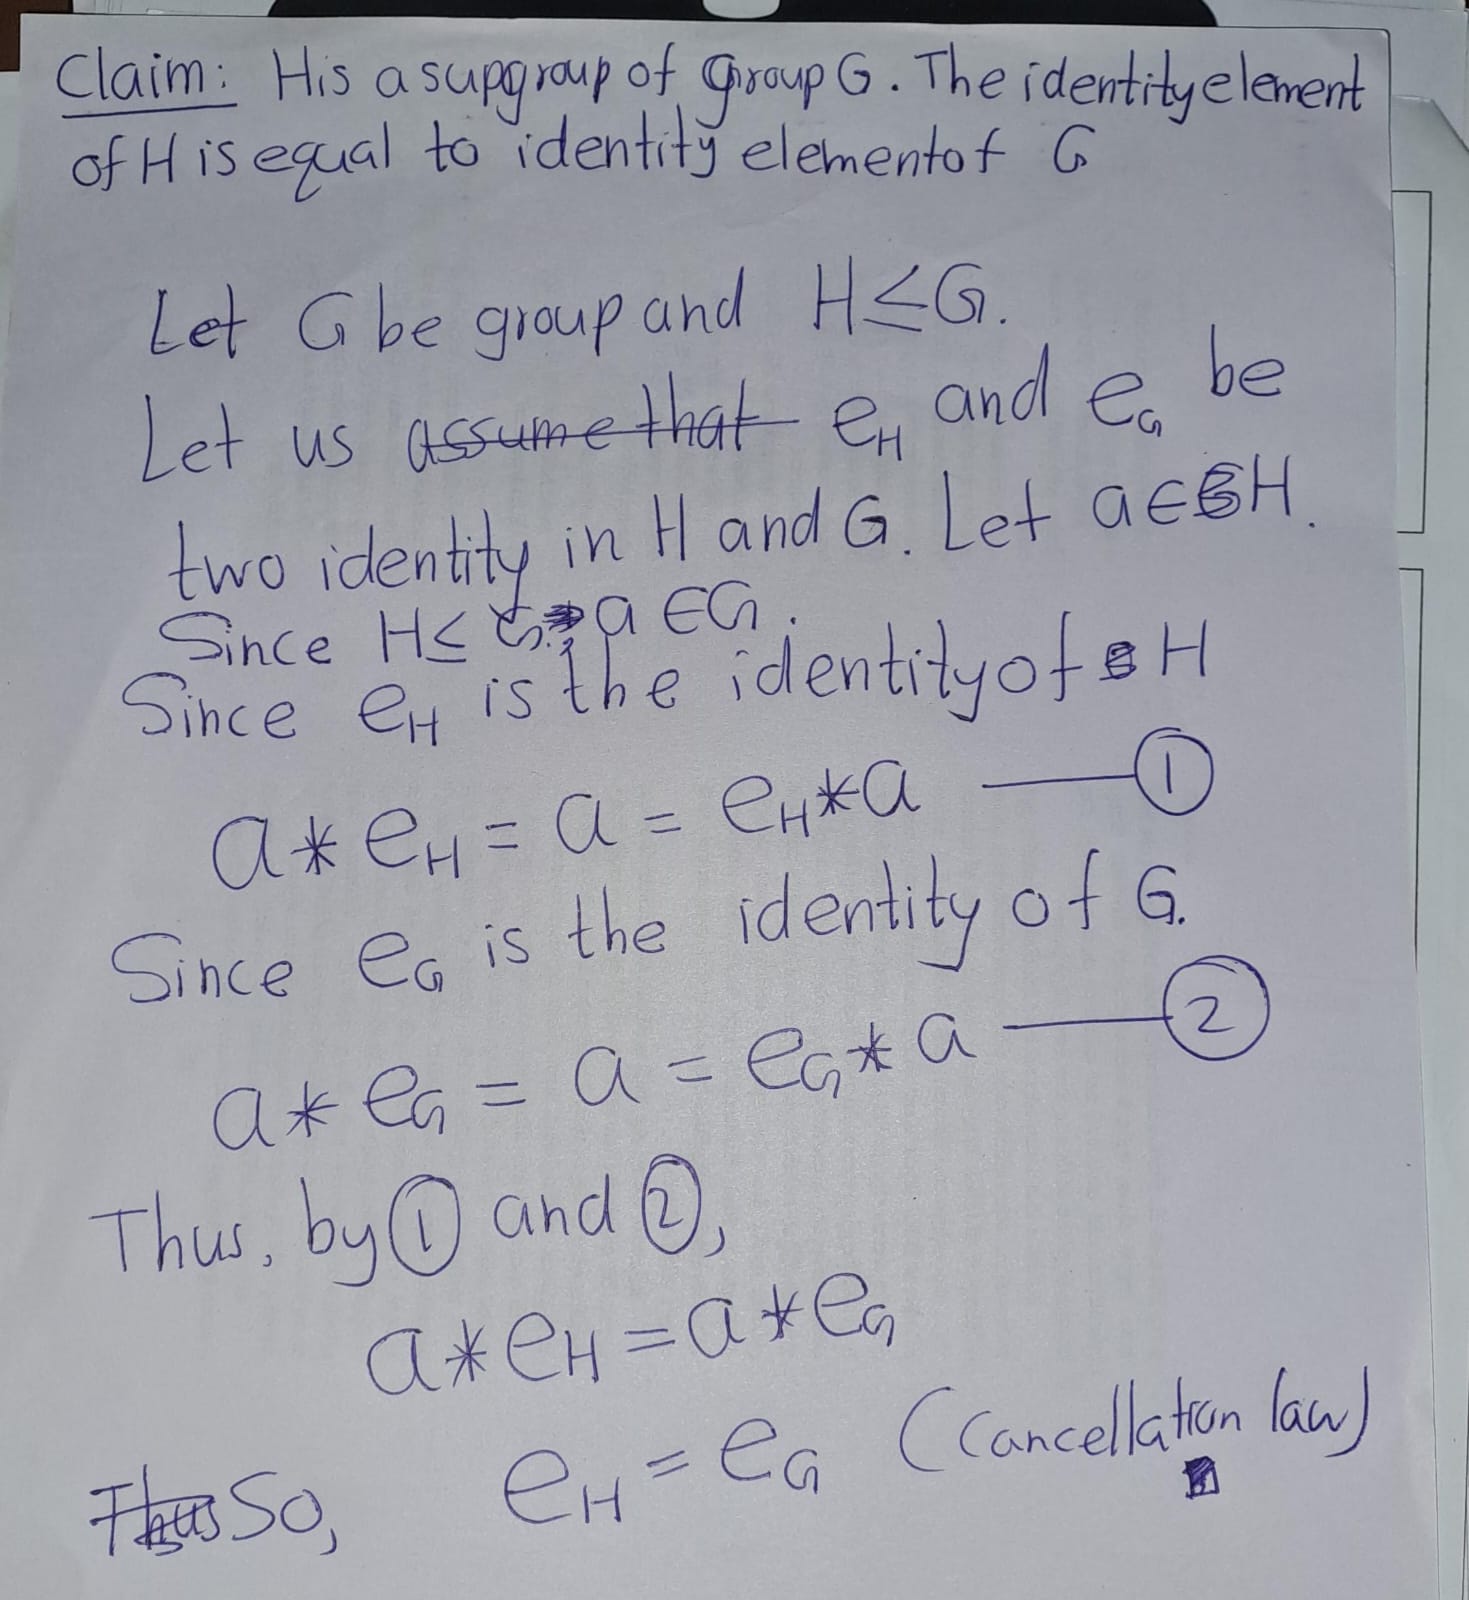 Claim: H is a supgroup of Group G. The identity element
of H is equal to identity element of G
Let G be group and H ≤ G.
Let us assume that e_H and e_G be
two identity in H and G. Let a ∈ H.
Since H ≤ G, a ∈ G.
Since e_H is the identity of H
a * e_H = a = e_H * a —— ①
Since e_G is the identity of G.
a * e_G = a = e_G * a —— ②
Thus, by ① and ②,
a * e_H = a * e_G
Thus So, e_H = e_G (Cancellation law)